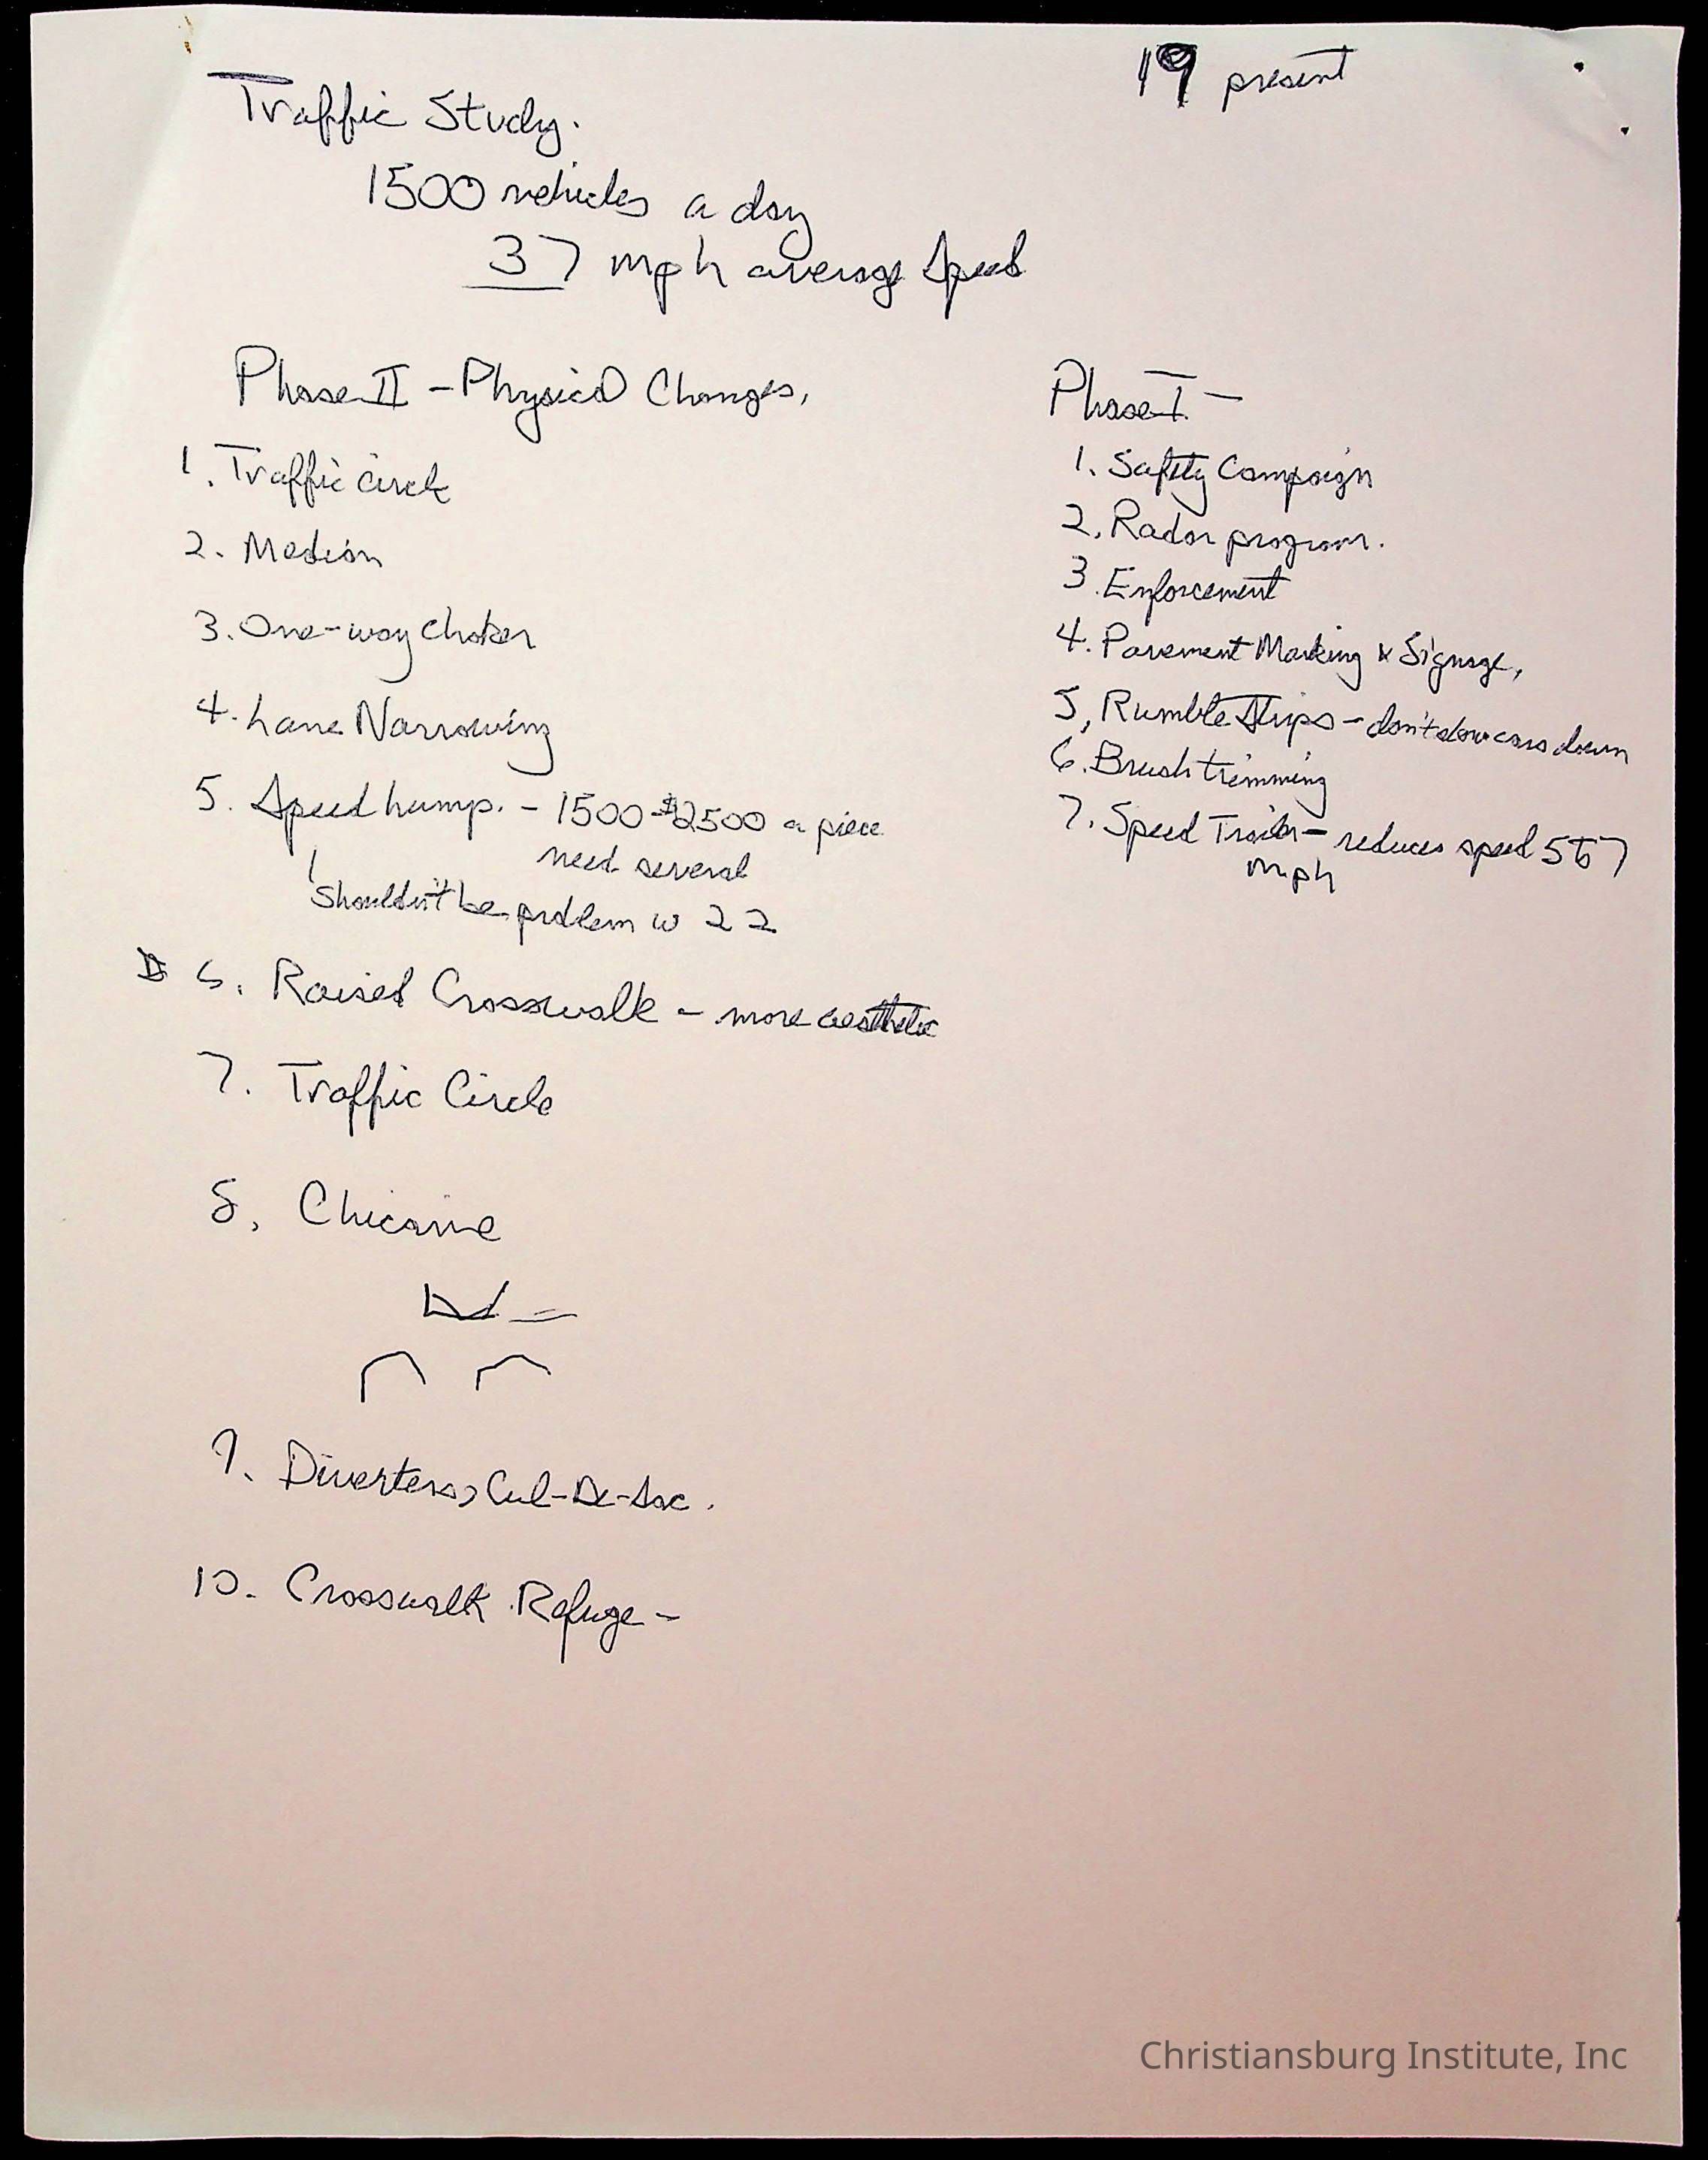 19 present
Traffic Study.
1500 vehicles a day
37 mph average speed
Phase II - Physical Changes,
1. Traffic Circle
2. Median
3. One-way Choker
4. Lane Narrowing
5. Speed hump. - 1500-$2500 a piece
need several
Shouldn't be problem w 22
6. Raised Crosswalk - more aesthetic
7. Traffic Circle
8. Chicane
9. Diverters, Cul-De-Sac.
10. Crosswalk Refuge -
Phase I -
1. Safety Campaign
2. Radar program.
3. Enforcement
4. Pavement Marking & Signage,
5, Rumble Strips - don't slow cars down
6. Brush trimming
7. Speed - reduces speed 5 to 7
mph
Christiansburg Institute, Inc